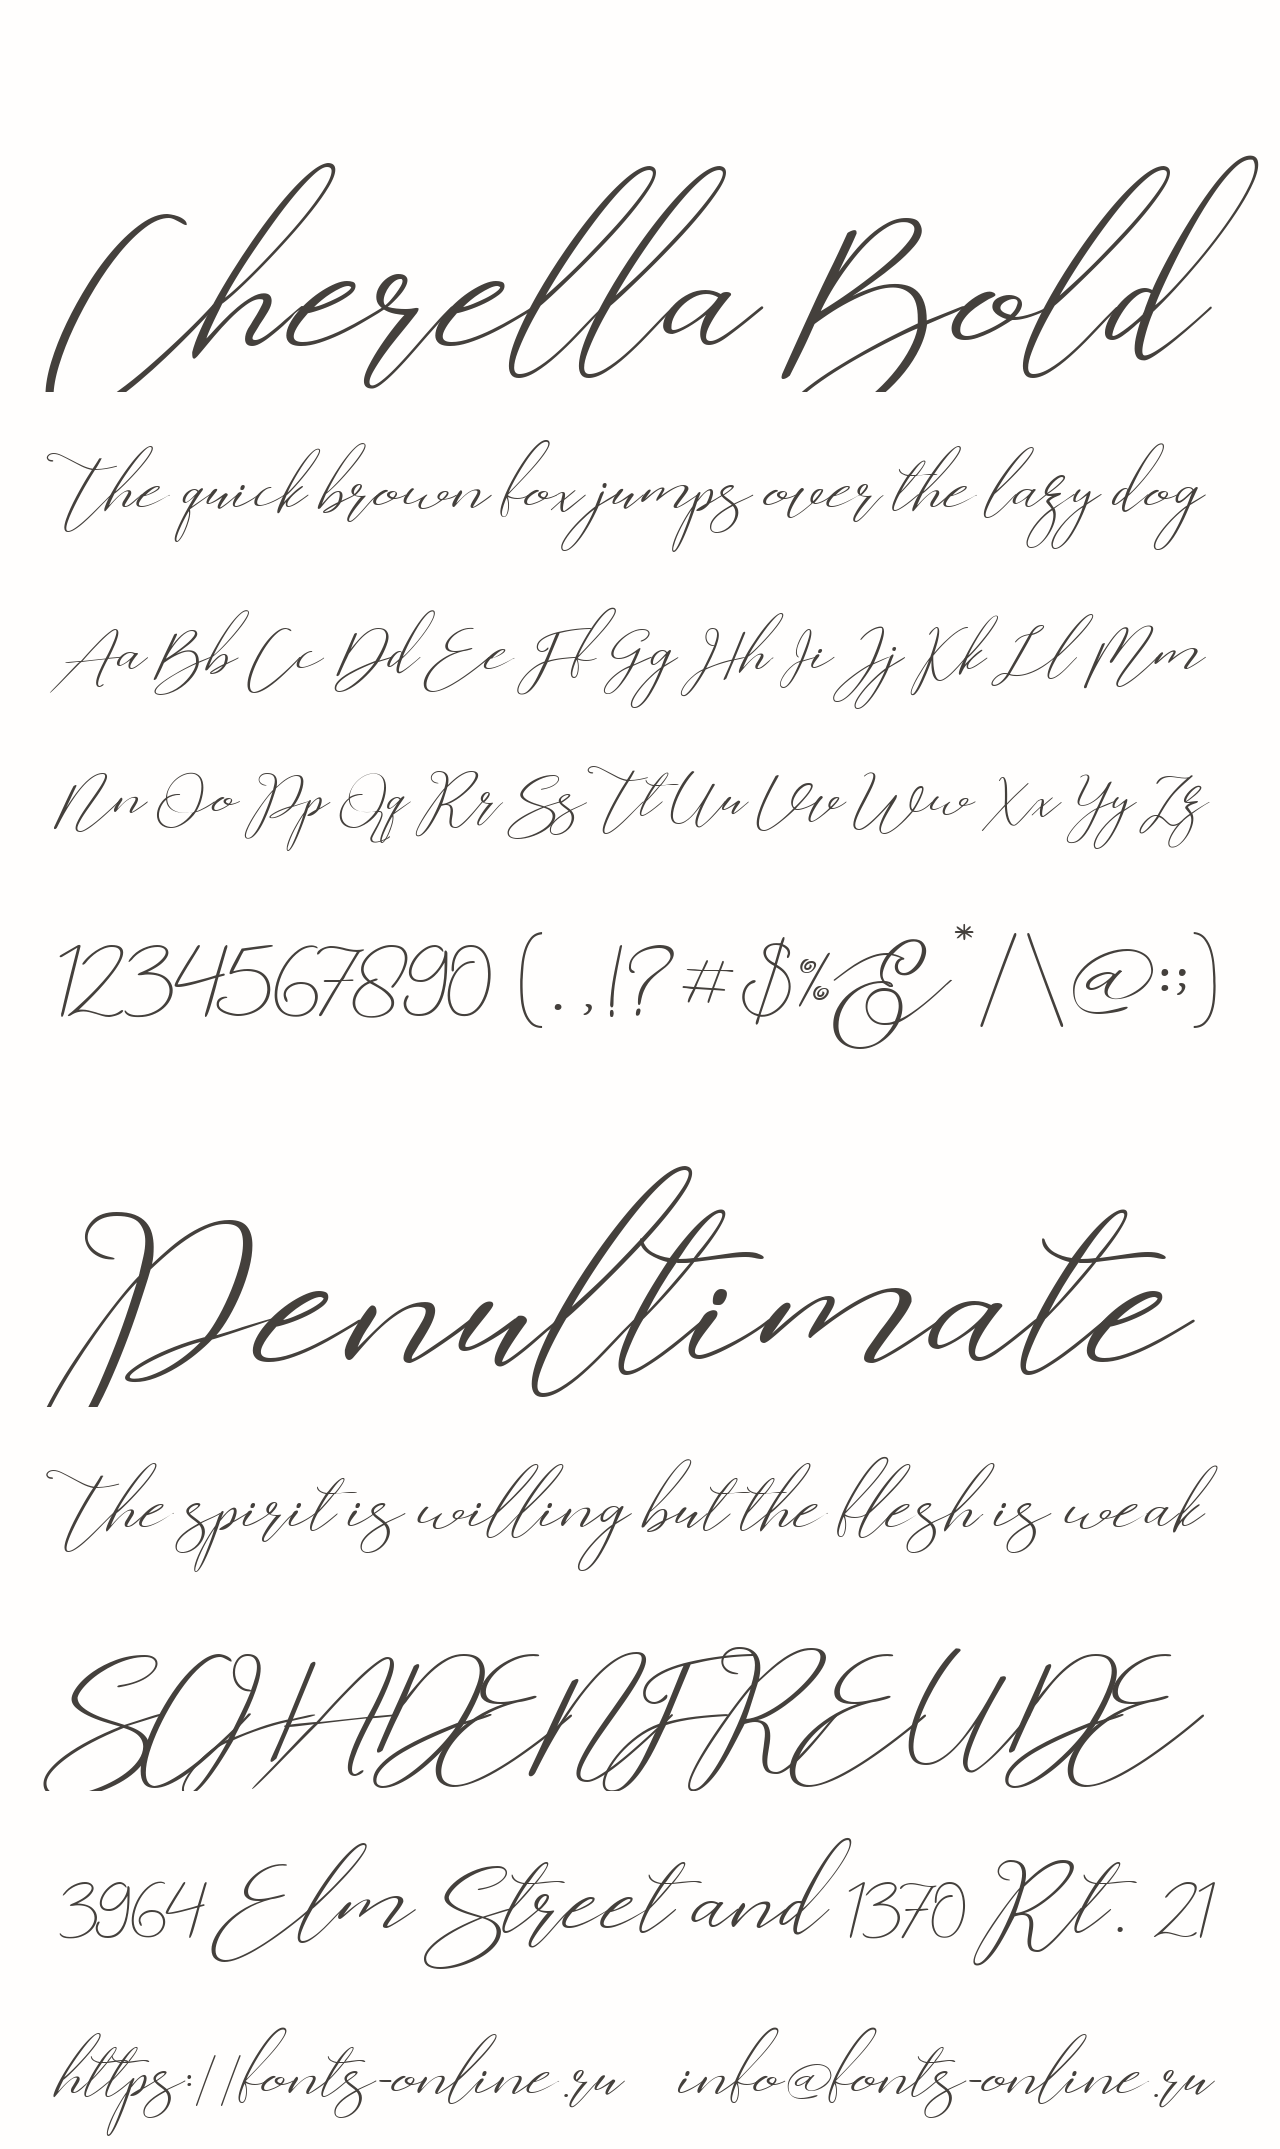 Cherella Bold
The quick brown fox jumps over the lazy dog
Aa Bb Cc Dd Ee Ff Gg Hh Ii Jj Kk Ll Mm
Nn Oo Pp Qq Rr Ss Tt Uu Vv Ww Xx Yy Zz
1234567890 (.,!?#$%&*/\@:;)
Penultimate
The spirit is willing but the flesh is weak
SCHADENFREUDE
3964 Elm Street and 1370 Rt. 21
https://fonts-online.ru info@fonts-online.ru